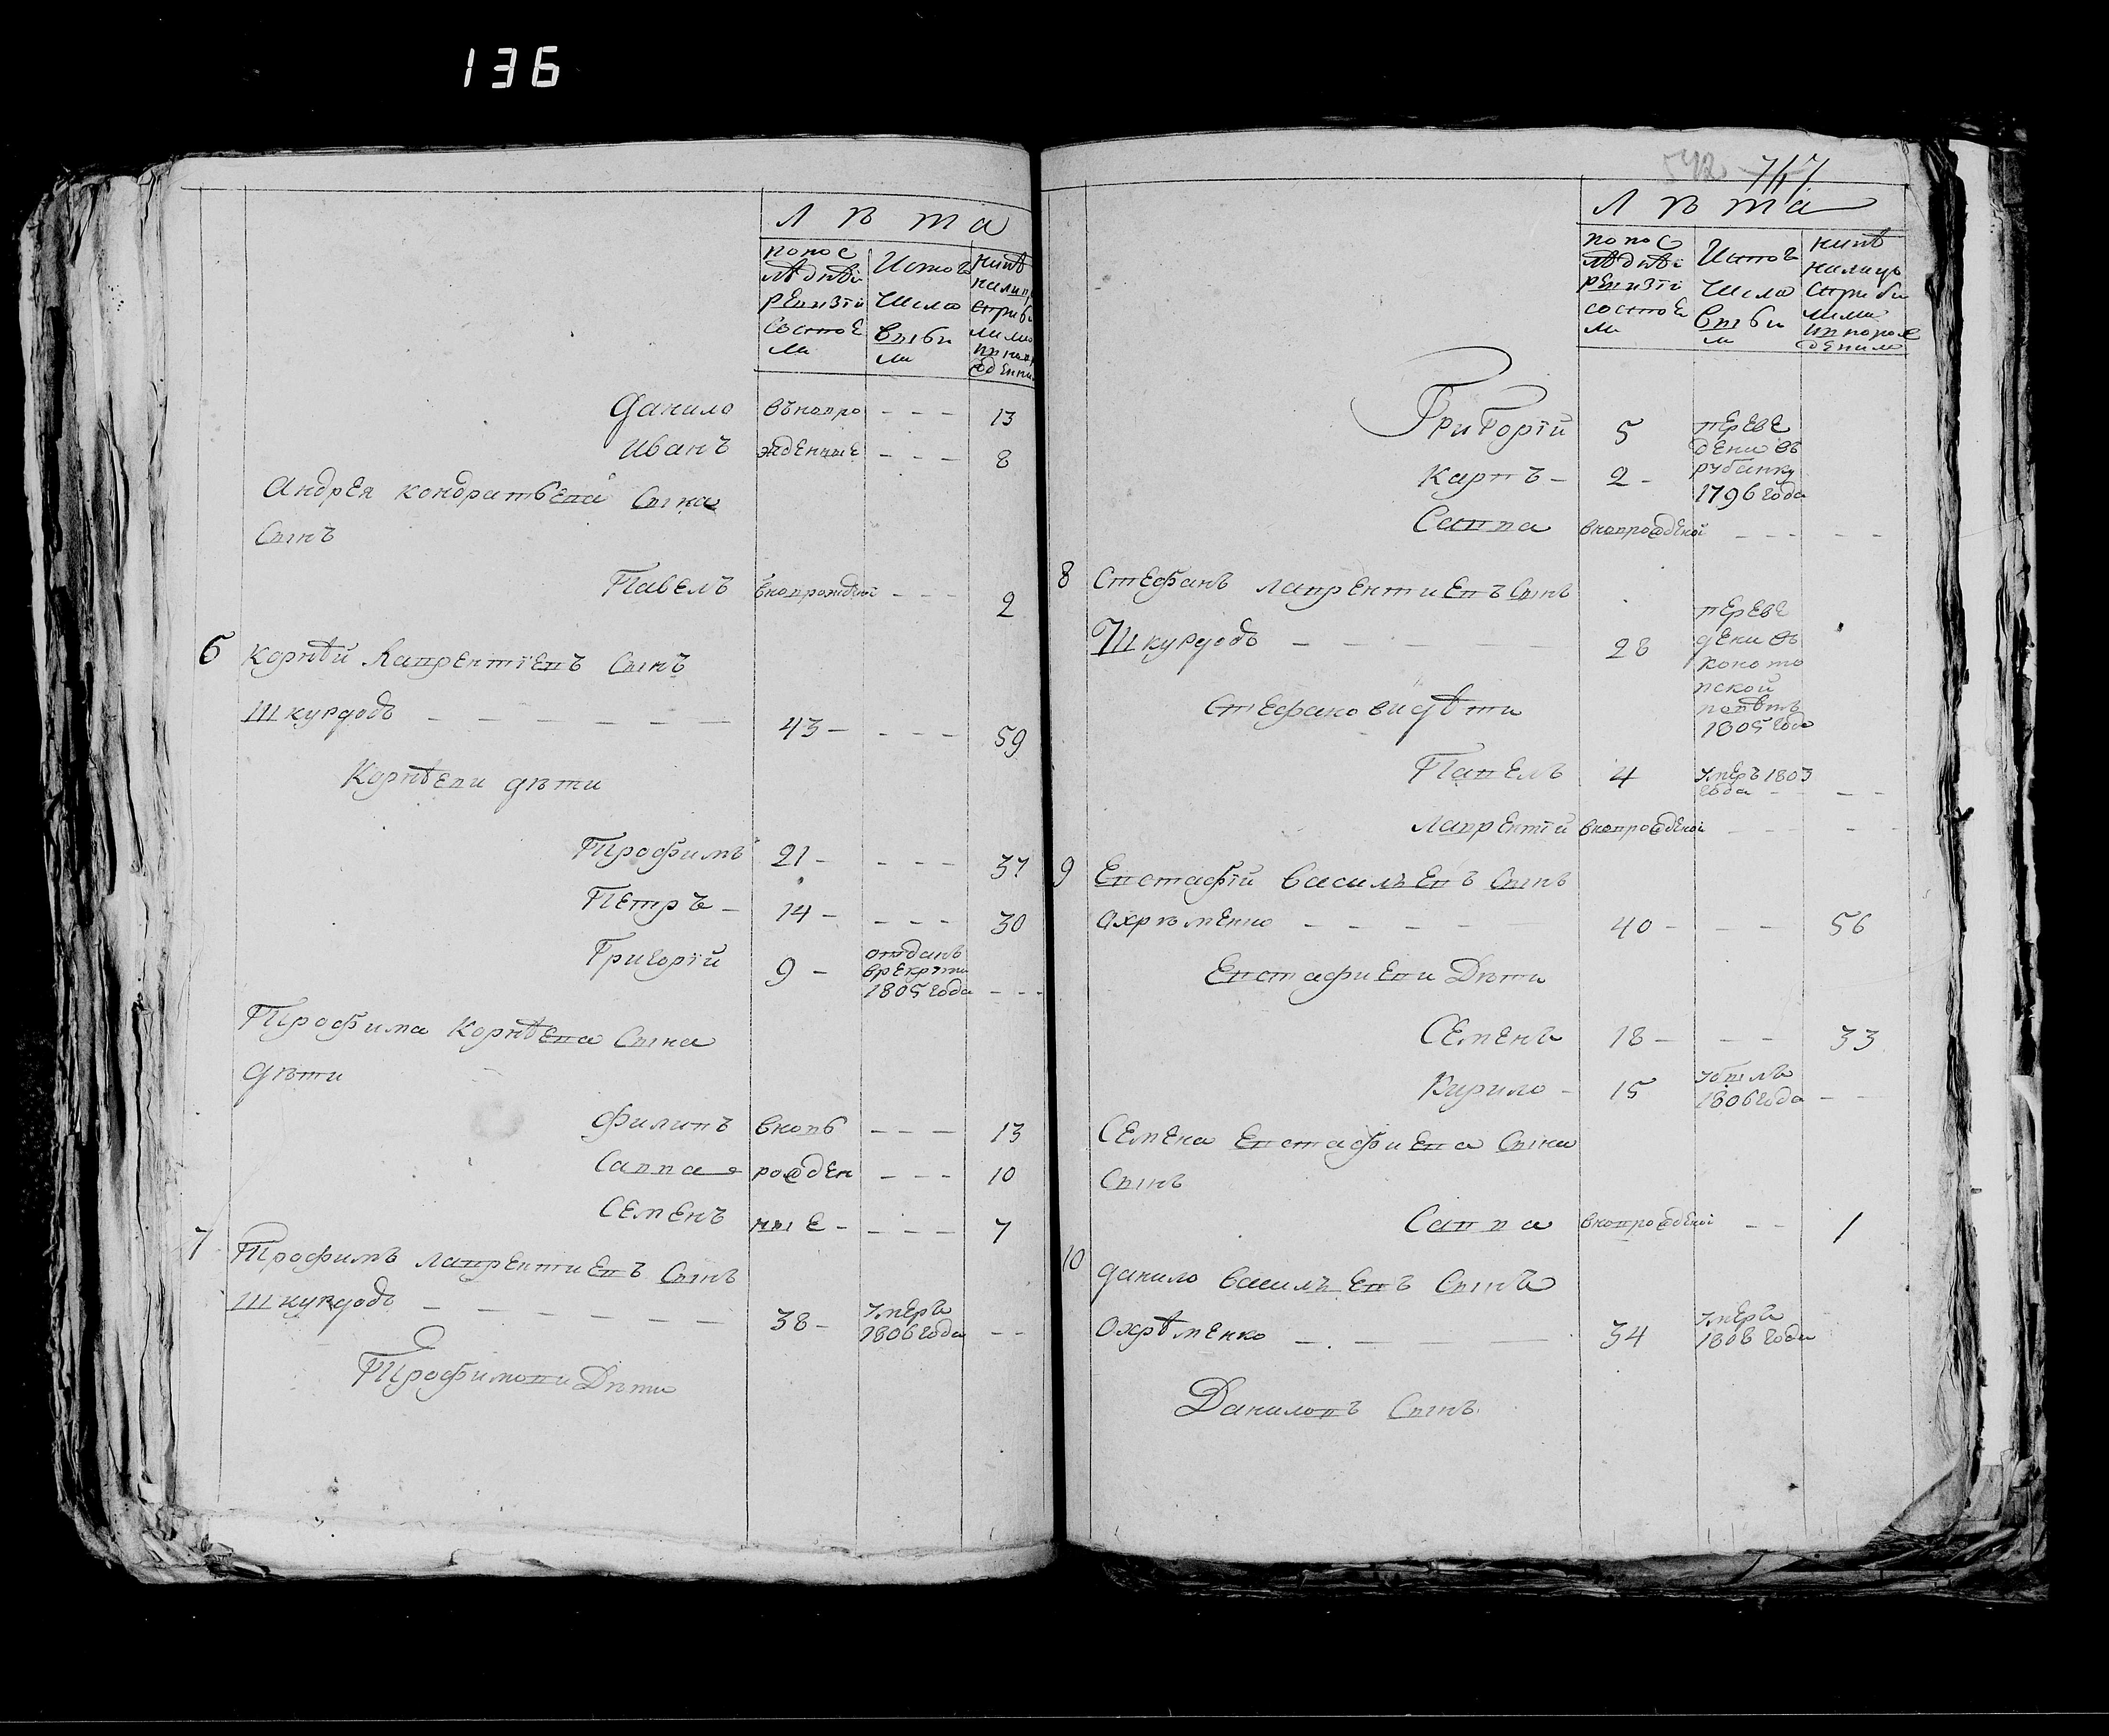 136
Лѣта
по пос
лѣднѣі
ревизіи
состоѣ
ли
Истог
числа
выбы
ли
Данило вънопро - - - 13
Иванъ жденные - - - 8
Андрея кондратьева Сына
Сынъ
Павелъ внопрождной - - - 2
6 Корнѣй Лаврентіевъ Сынъ
Шкурдодъ - - - - - - 43 - - - - 59
Корнѣеви дѣти
Трофимъ 21 - - - - 37
Петръ - 14 - - - - 30
Григорій 9 - отданъ
врекруты
1805 года - - -
Трофима Корнѣева Сына
дѣти
Филипъ вновь - - - 13
Савва рожден - - - 10
Семенъ ные - - - - 7
7 Трофимъ лаврентиевъ Сынъ
Шкурдодъ - - - - - - 38 - умеръ
1806 года - -
Трофимови Дѣти
542 717
Лѣта
по пос
лѣднѣі
ревизіи
состоѣ
ли
Истог
числа
выбы
ли
нинѣ
налицо
Григорій 5 переве
дени въ
Карпъ - 2 - рубанку
1796 года
Савва внопрожденой - - - - -
8 Стефанъ лаврентиевъ Сынъ
Шкурдодъ - - - - - 28 переве
дени въ
коното
пской
повѣтъ
1805 года
Стефанови дѣти
Павелъ 4 умеръ 1803
года - - -
лаврентій внопрожденой - - - - -
9 Евстафій васильевъ Сынъ
Охрѣменко - - - - - 40 - - - 56
Евстафиеви Дѣти
Семенъ 18 - - - 33
Кирило - 15 убылъ
1806 года - -
Семена Евстафиева Сына
Сынъ
Савва внопрожденой - - 1
10 данило васильевъ Сынъ
Охрѣменко - - - - 34 умеръ
1808 года
Даниловъ Сынъ